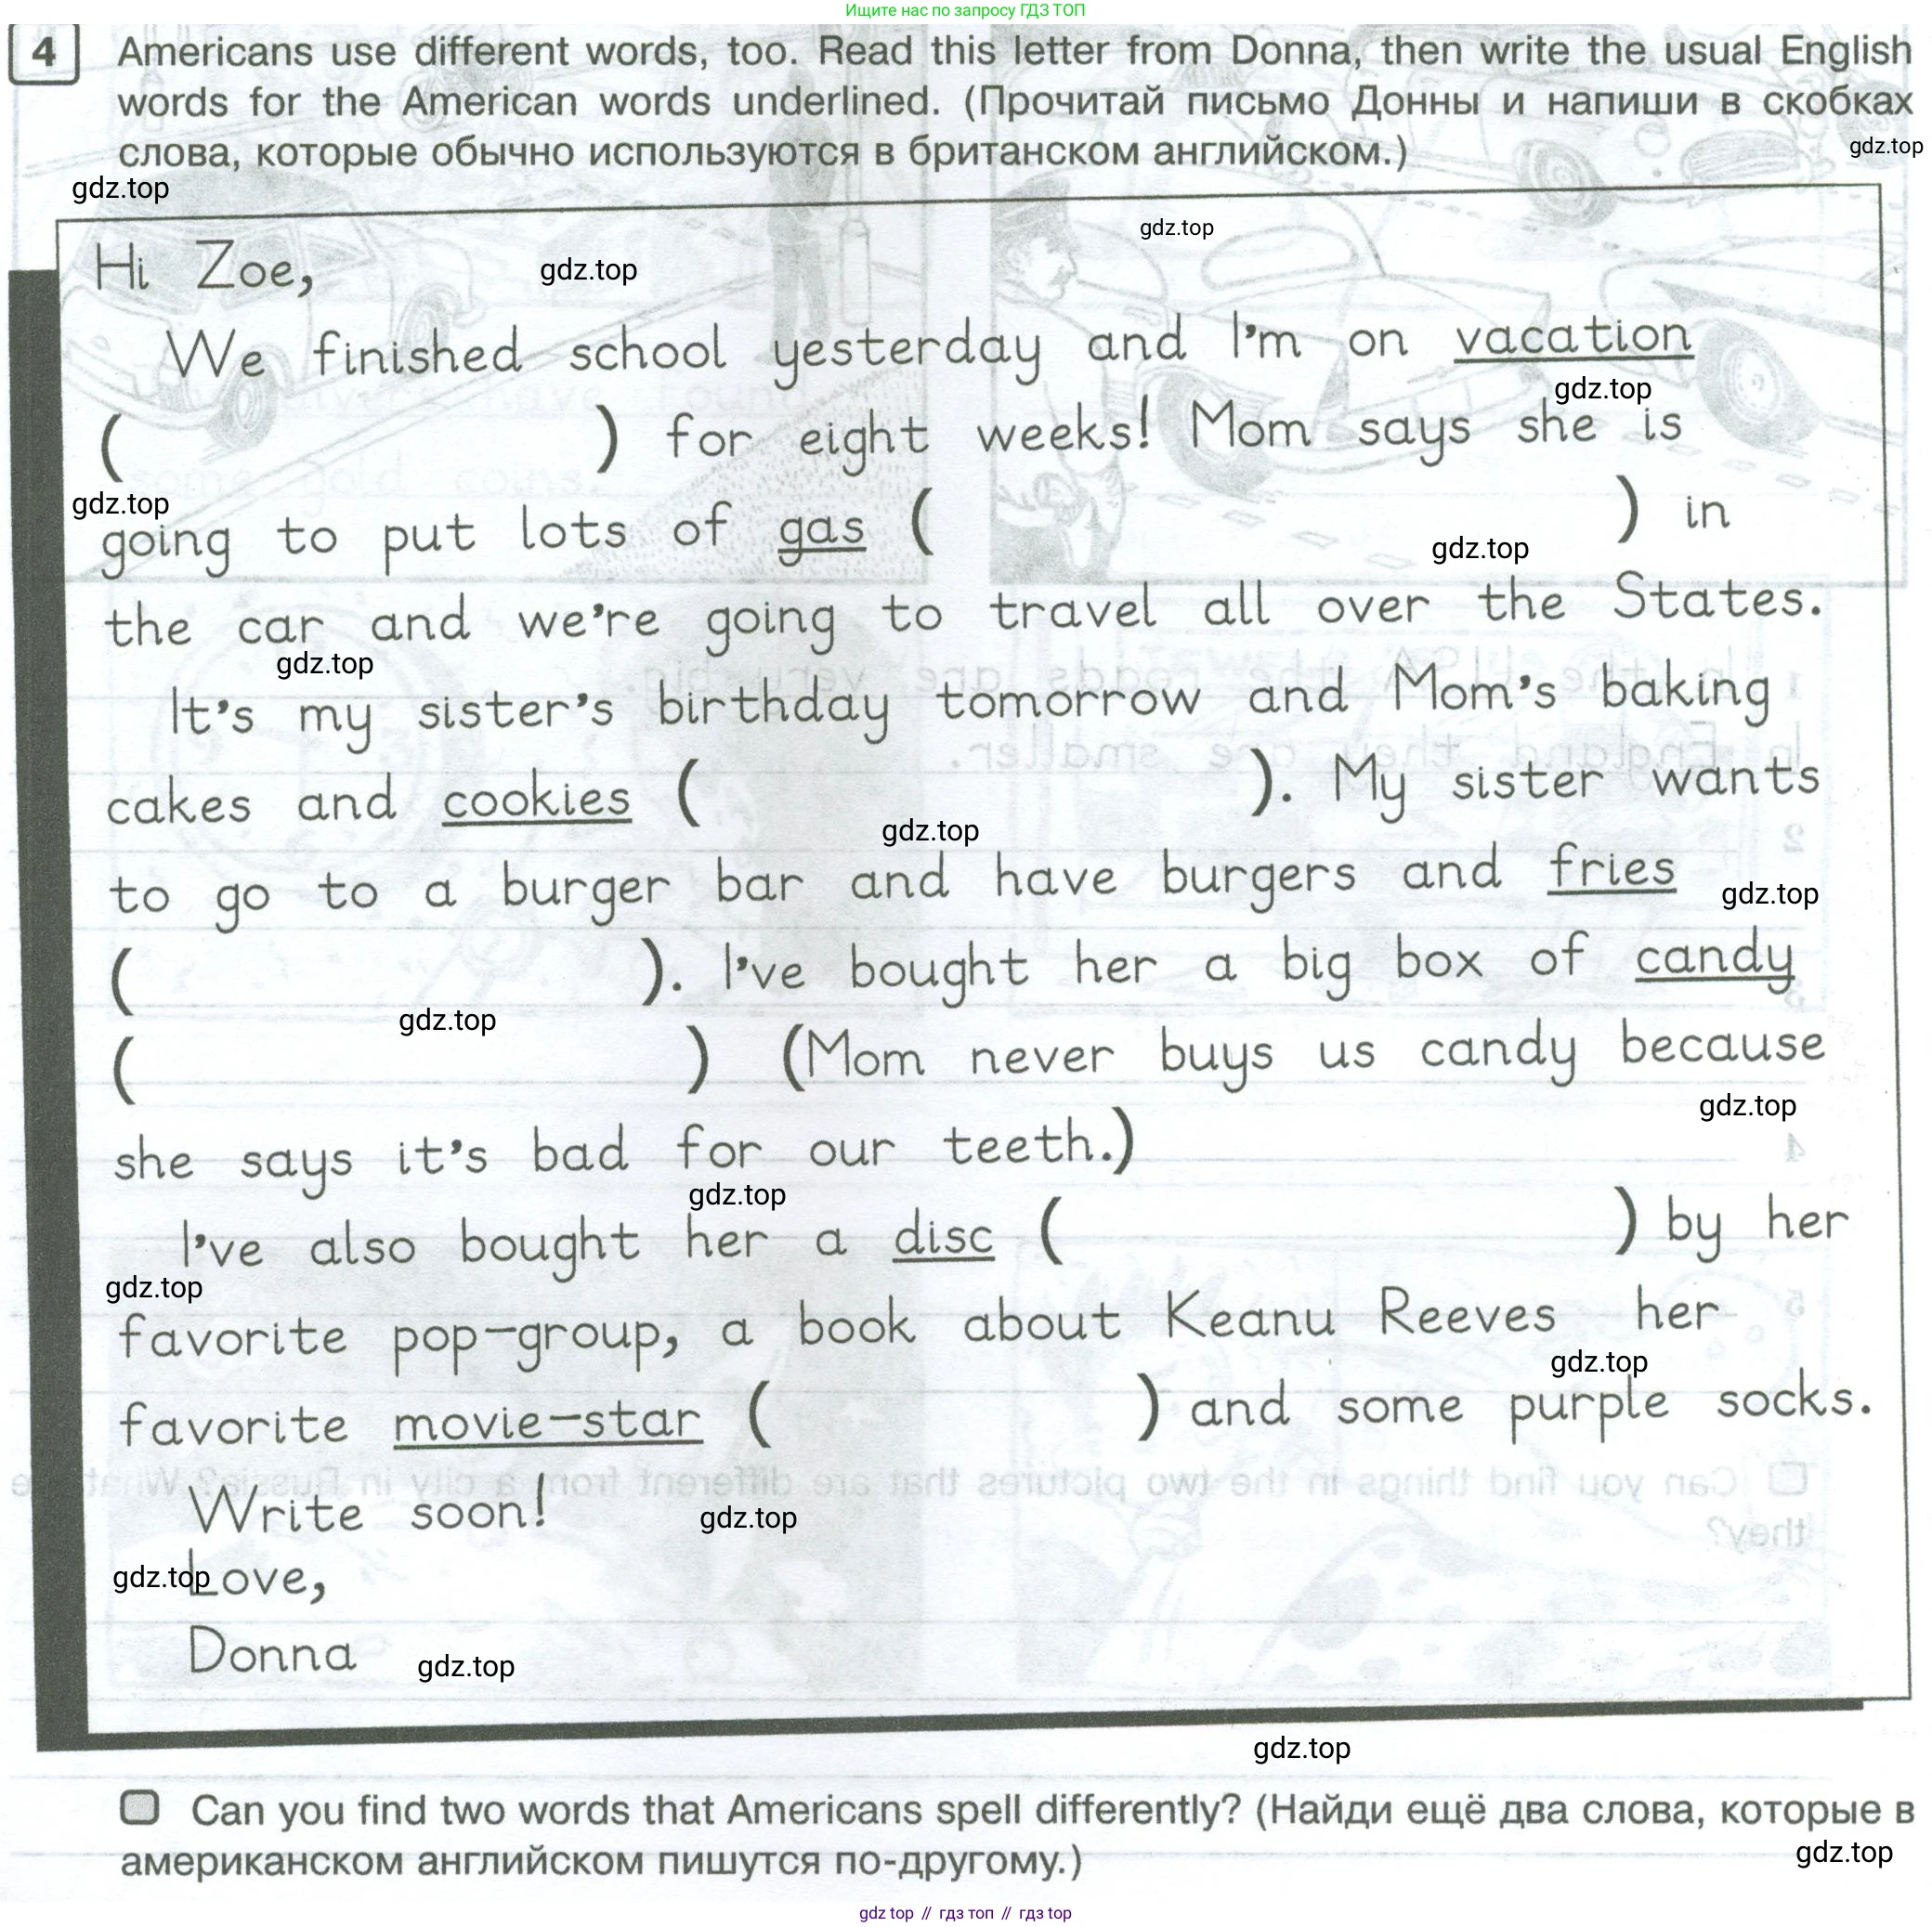 Ищите нас по запросу ГДЗ ТОП
4 Americans use different words, too. Read this letter from Donna, then write the usual English
words for the American words underlined. (Прочитай письмо Донны и напиши в скобках
слова, которые обычно используются в британском английском.)
gdz.top
gdz.top
gdz.top
Hi Zoe,
gdz.top
We finished school yesterday and I'm on vacation
gdz.top
( ) for eight weeks! Mom says she is
gdz.top
going to put lots of gas ( ) in
gdz.top
the car and we're going to travel all over the States.
gdz.top
It's my sister's birthday tomorrow and Mom's baking
cakes and cookies ( ). My sister wants
gdz.top
to go to a burger bar and have burgers and fries
gdz.top
( ). I've bought her a big box of candy
gdz.top
( ) (Mom never buys us candy because
gdz.top
she says it's bad for our teeth.)
gdz.top
I've also bought her a disc ( ) by her
gdz.top
favorite pop-group, a book about Keanu Reeves her
gdz.top
favorite movie-star ( ) and some purple socks.
Write soon!
gdz.top
Love,
gdz.top
Donna
gdz.top
gdz.top
Can you find two words that Americans spell differently? (Найди ещё два слова, которые в
американском английском пишутся по-другому.)
gdz.top
gdz top // гдз топ // гдз top